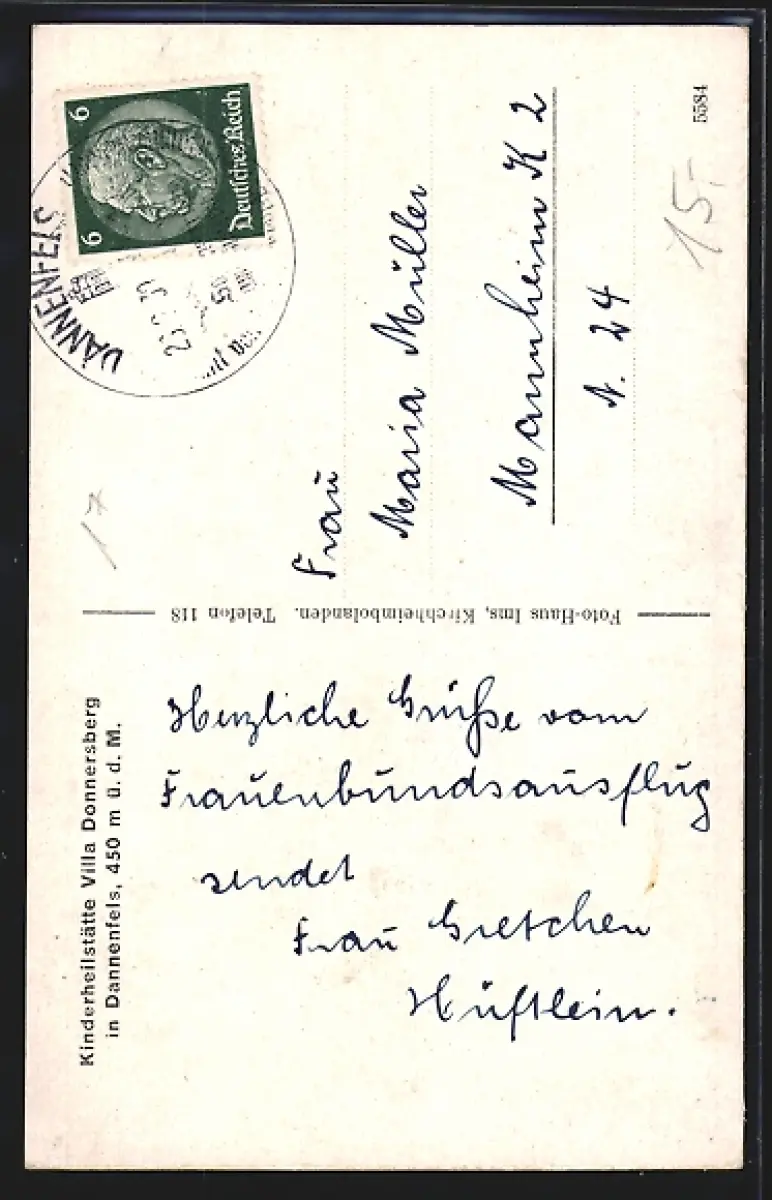 Kinderheilstätte Villa Donnersberg
in Dannenfels, 450 m ü. d. M.
Herzliche Grüße vom
Frauenbundsausflug
sendet
Frau Gretchen
Hüftlein.
Foto-Haus Ims, Kirchheimbolanden. Telefon 118
6 6
Deutsches Reich
DANNENFELS
Frau
Maria Müller
Mannheim K 2
N. 24
17
15.-
5584